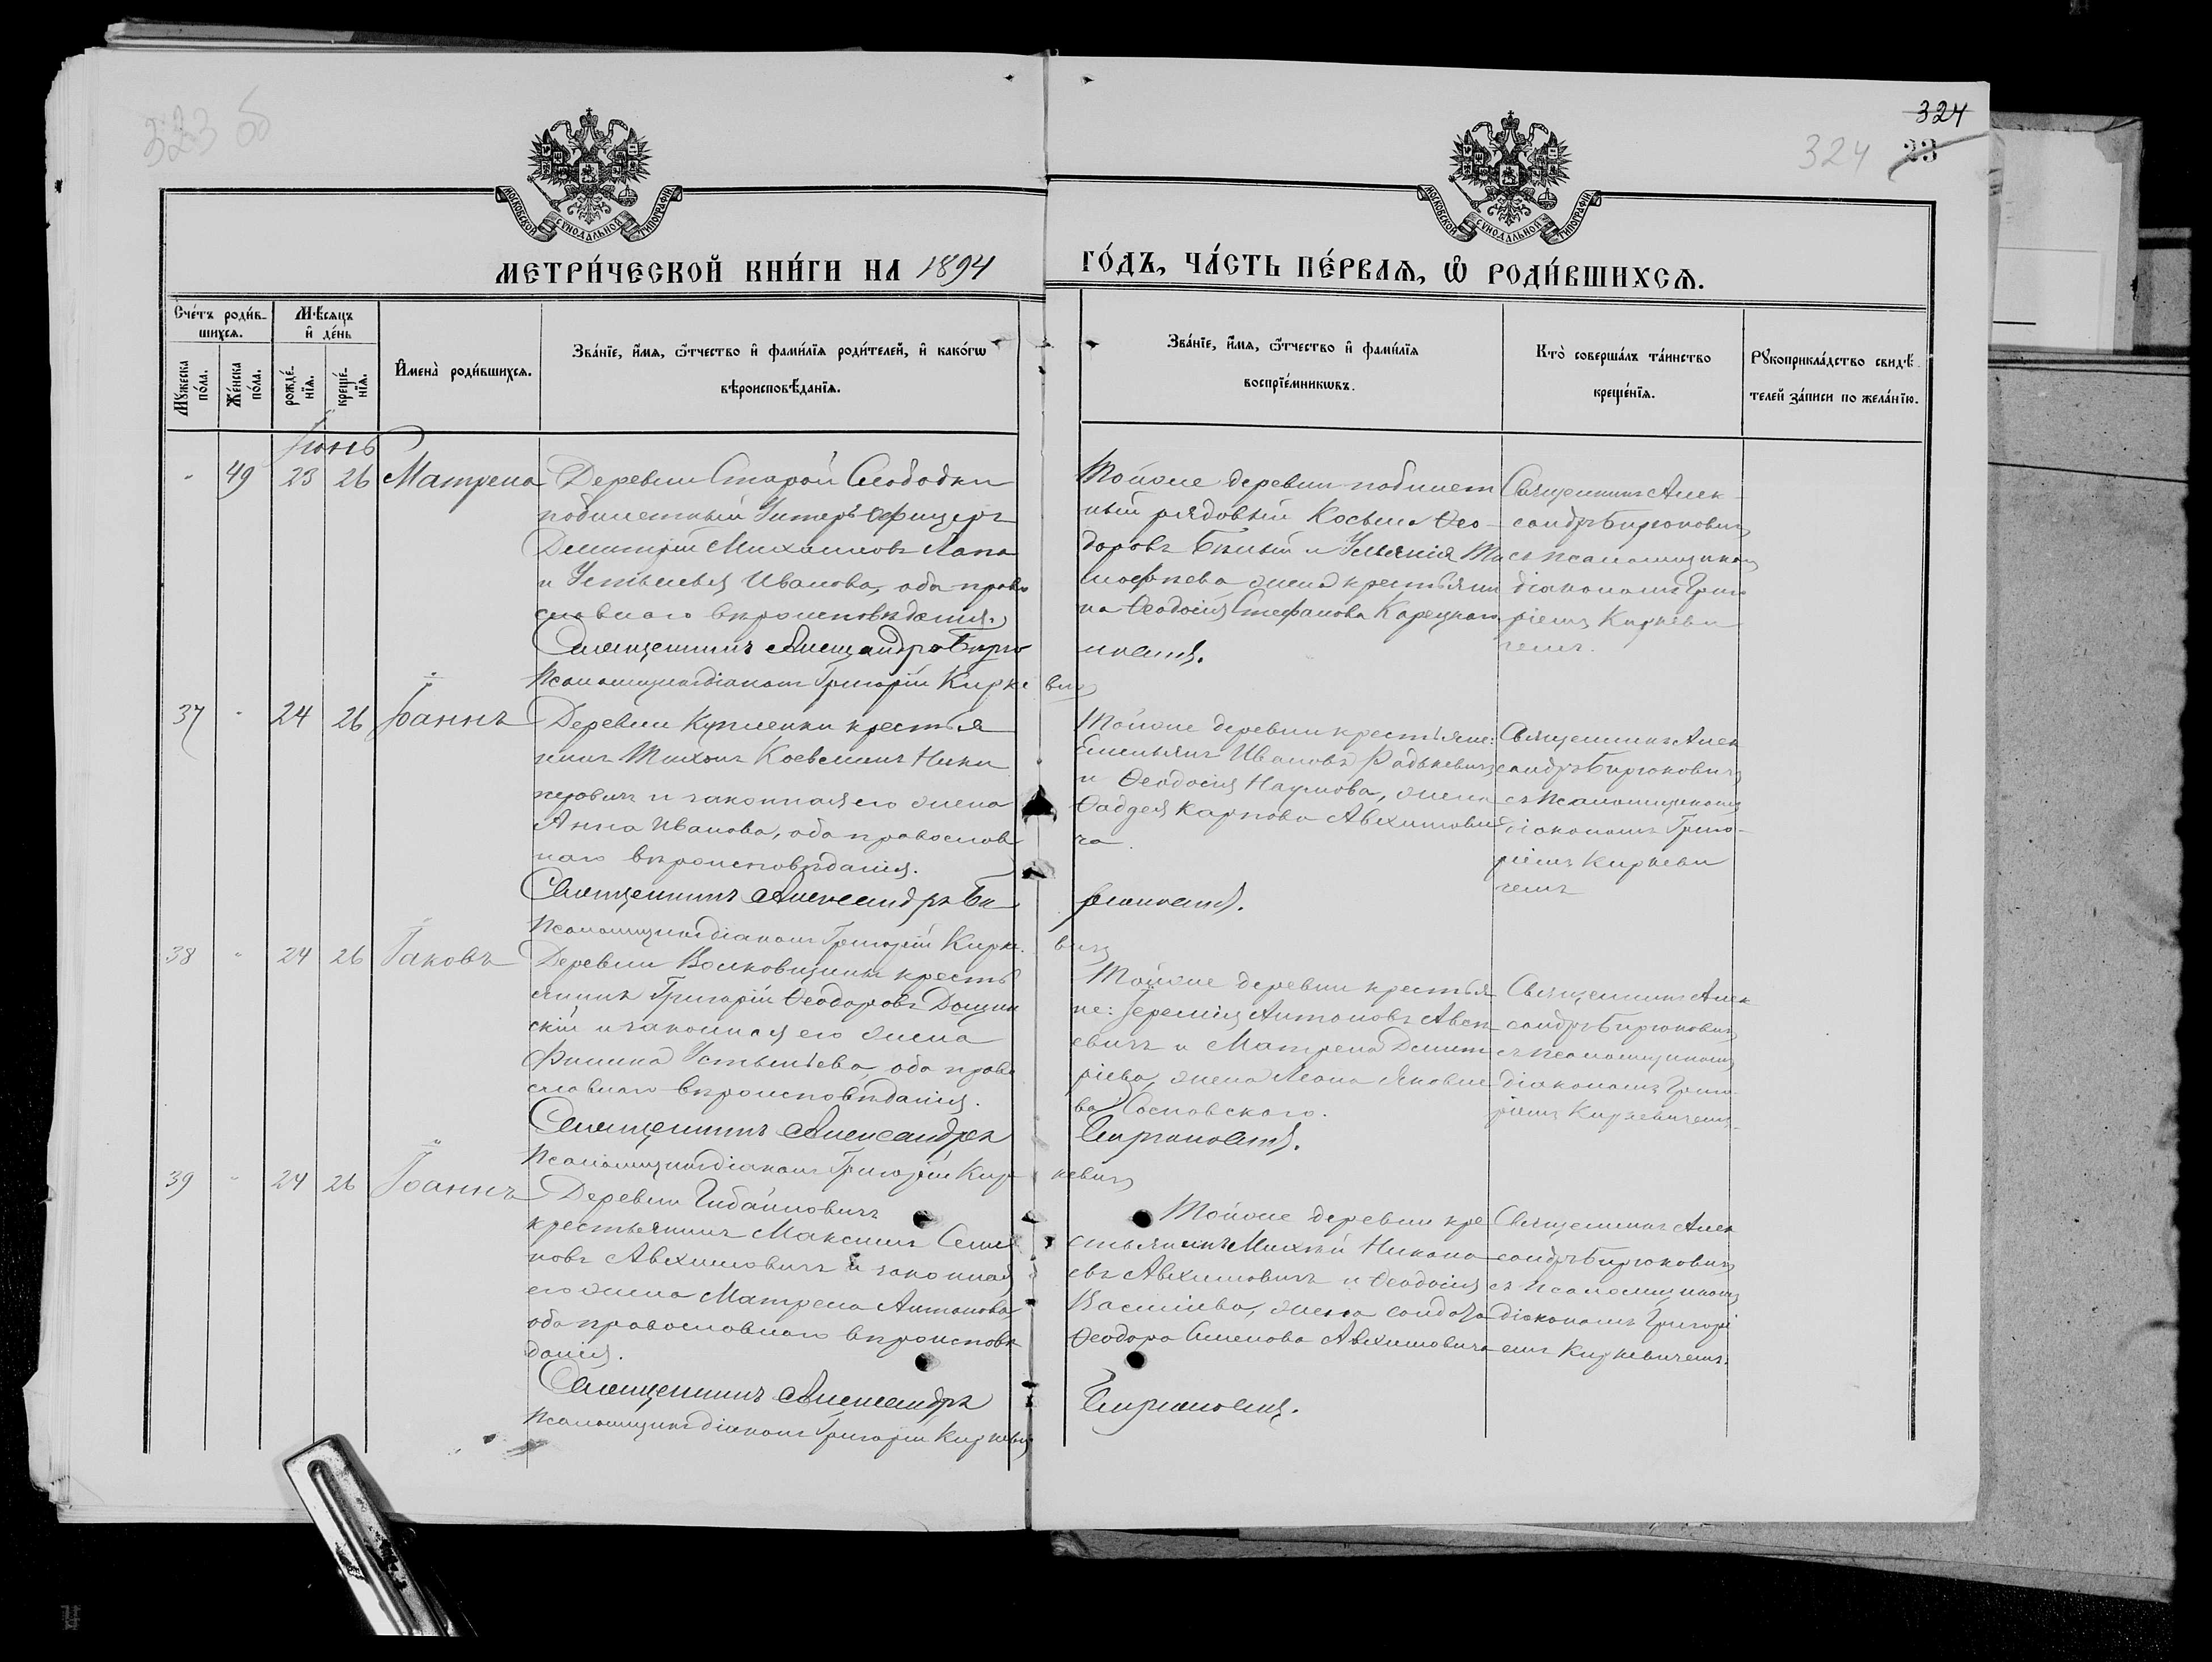 323 об
324
324 23
МОСКОВСКОЙ СѴНОДАЛЬНОЙ ТИПОГРАФІИ
МОСКОВСКОЙ СѴНОДАЛЬНОЙ ТИПОГРАФІИ
МЕТРИ́ЧЕСКОЙ КНИ́ГИ НА 1894
ГО́ДЪ, ЧА́СТЬ ПЕ́РВАѦ, Ѡ҆ РОДИ́ВШИХСѦ.
Сче́тъ роди́в-
шихсѧ.
Мꙋ́жеска по́ла.
Же́нска по́ла.
Мѣ́сѧцъ
и҆ де́нь
рожде́-
нїѧ.
креще́-
нїѧ.
И҆мена̀ роди́вшихсѧ.
Зва́нїе, и҆́мѧ, ѻ҆́тчество и҆ фами́лїѧ роди́телей, и҆ како́гѡ
вѣроисповѣ́данїѧ.
Зва́нїе, и҆́мѧ, ѻ҆́тчество и҆ фами́лїѧ
воспрїе́мникѡвъ.
Кто̀ соверша́лъ та́инство
креще́нїѧ.
Рꙋкоприкла́дство свидѣ́-
телей за́писи по жела́нїю.
Іюнь
" 49 23 26 Матрена
Деревни Старой Слободки
побилетный Унтеръ Офицеръ
Димитрій Михаиловъ Лапа
и Устинья Иванова, оба право
славнаго вѣроисповѣданія.
Священникъ Александръ Бирю
Псаломщикъ діаконъ Григорій Кирке
Тойже деревни побилет
ный рядовый Косьма Ѳео-
доровъ Бѣлый и Ульянія Ти
моѳеева жена крестьяни
на Ѳеодосія Стефанова Карецкаго
ковичъ.
вичъ
Священникъ Алек-
сандръ Бирюковичъ
съ псаломщикомъ
діакономъ Григо
ріемъ Киркеви
чемъ.
37 " 24 26 Іоаннъ
Деревни крестья
нинъ Тихонъ
и законная его жена
Анна Иванова, оба православ
наго вѣроисповѣданія.
Священникъ Александръ Би
Псаломщикъ діаконъ Григорій Кирке
Тойже деревни крестьяне:
Емельянъ Ивановъ Радькевичъ
и Ѳеодосія Наумова, жена
Ѳаддея Карпова Авхимови
ча.
рюковичъ.
вичъ
Священникъ Алек
сандръ Бирюковичъ
съ псаломщикомъ
діакономъ Григо-
ріемъ Киркеви
чемъ
38 " 24 26 Іаковъ
Деревни Волковщины кресть
янинъ Григорій Ѳеодоровъ
скій и законная его жена
Устиньева, оба право
славнаго вѣроисповѣданія.
Священникъ Александръ
Псаломщикъ діаконъ Григорій Кир
Тойже деревни крестья
не: Іеремія Антоновъ
евичъ и Матрена Димит
ріева, жена Яковле
ва Сосновскаго.
Бирюковичъ.
кевичъ
Священникъ Алек
сандръ Бирюковичъ
съ псаломщикомъ
діакономъ Григо-
ріемъ Киркевичемъ.
39 " 24 26 Іоаннъ
Деревни
крестьянинъ Максимъ Семе
новъ Авхимовичъ и законная
его жена Матрена Антонова,
оба православнаго вѣроисповѣ
данія.
Священникъ Александръ
Псаломщикъ діаконъ Григорій Киркевичъ
Тойже деревни кре
стьянинъ Михей
евъ Авхимовичъ и Ѳеодосія
Васильева, жена солдата
Ѳеодора Семенова Авхимовича
Бирюковичъ.
Священникъ Алек
сандръ Бирюковичъ
съ псаломщикомъ
діакономъ Григорі
емъ Киркевичемъ.